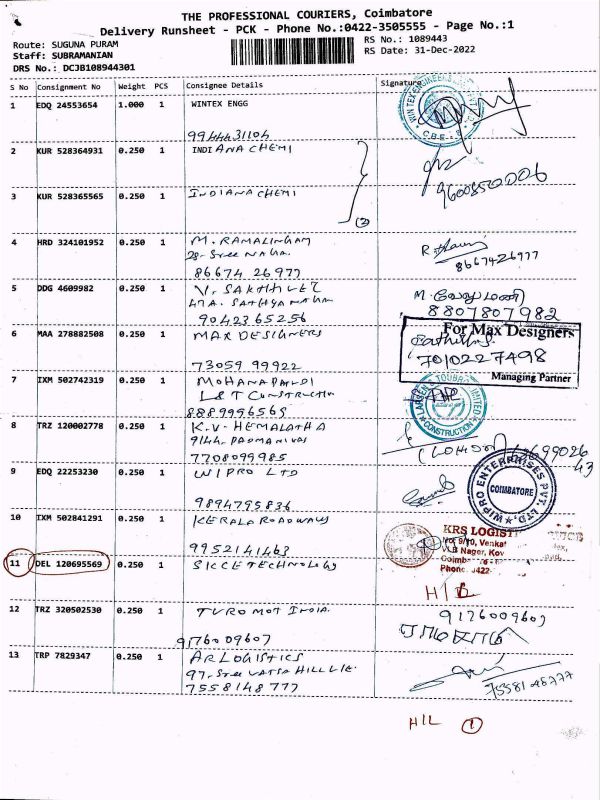 THE PROFESSIONAL COURIERS, Coimbatore
Delivery Runsheet - PCK - Phone No.:0422-3505555 - Page No.:1
Route: SUGUNA PURAM
RS No.: 1089443
Staff: SUBRAMANIAN
RS Date: 31-Dec-2022
DRS No.: DCJB108944301
S No Consignment No Weight PCS Consignee Details Signature
1 EDQ 24553654 1.000 1 WINTEX ENGG
9944431104
2 KUR 528364931 0.250 1 INDIANA CHEMI
9600850006
3 KUR 528365565 0.250 1 INDIANA CHEMI
(2)
4 HRD 324101952 0.250 1 M. RAMALINGAM
28- Sree NAGA.
86674 26977 8667426977
5 DDG 4609982 0.250 1 V. SAKTHIVEL
47A. SATHYA NAGAR M. வேலுமணி
9042365256 8807807982
6 MAA 278882508 0.250 1 MAX DESIGNERS For Max Designers
73059 99922 7010227498
Managing Partner
7 IXM 502742319 0.250 1 MOHANAPANDI
L&T CONSTRUCTION
8889996569
LARSEN & TOUBRO LIMITED
CONSTRUCTION
8 TRZ 120002778 0.250 1 K.V. HEMALATHA
9144. PADMANIVAS
7708099985
9 EDQ 22253230 0.250 1 WIPRO LTD
9894795836
WIPRO ENTERPRISES PVT LTD,
COIMBATORE
10 IXM 502841291 0.250 1 KERALA ROADWAYS
9952141463
KRS LOGIST
No. 9/10, Venkat
V.B Nager, Kov
Phone: 0422
11 DEL 120695569 0.250 1 SICCE TECHNOLOGY
H/L
12 TRZ 320502530 0.250 1 TVRO MOT INDIA.
9176009607 9176009607
13 TRP 7829347 0.250 1 AR LOGISTICS
97- Sree VATSA HILLVIE.
7558148777 7558148777
H/L 1